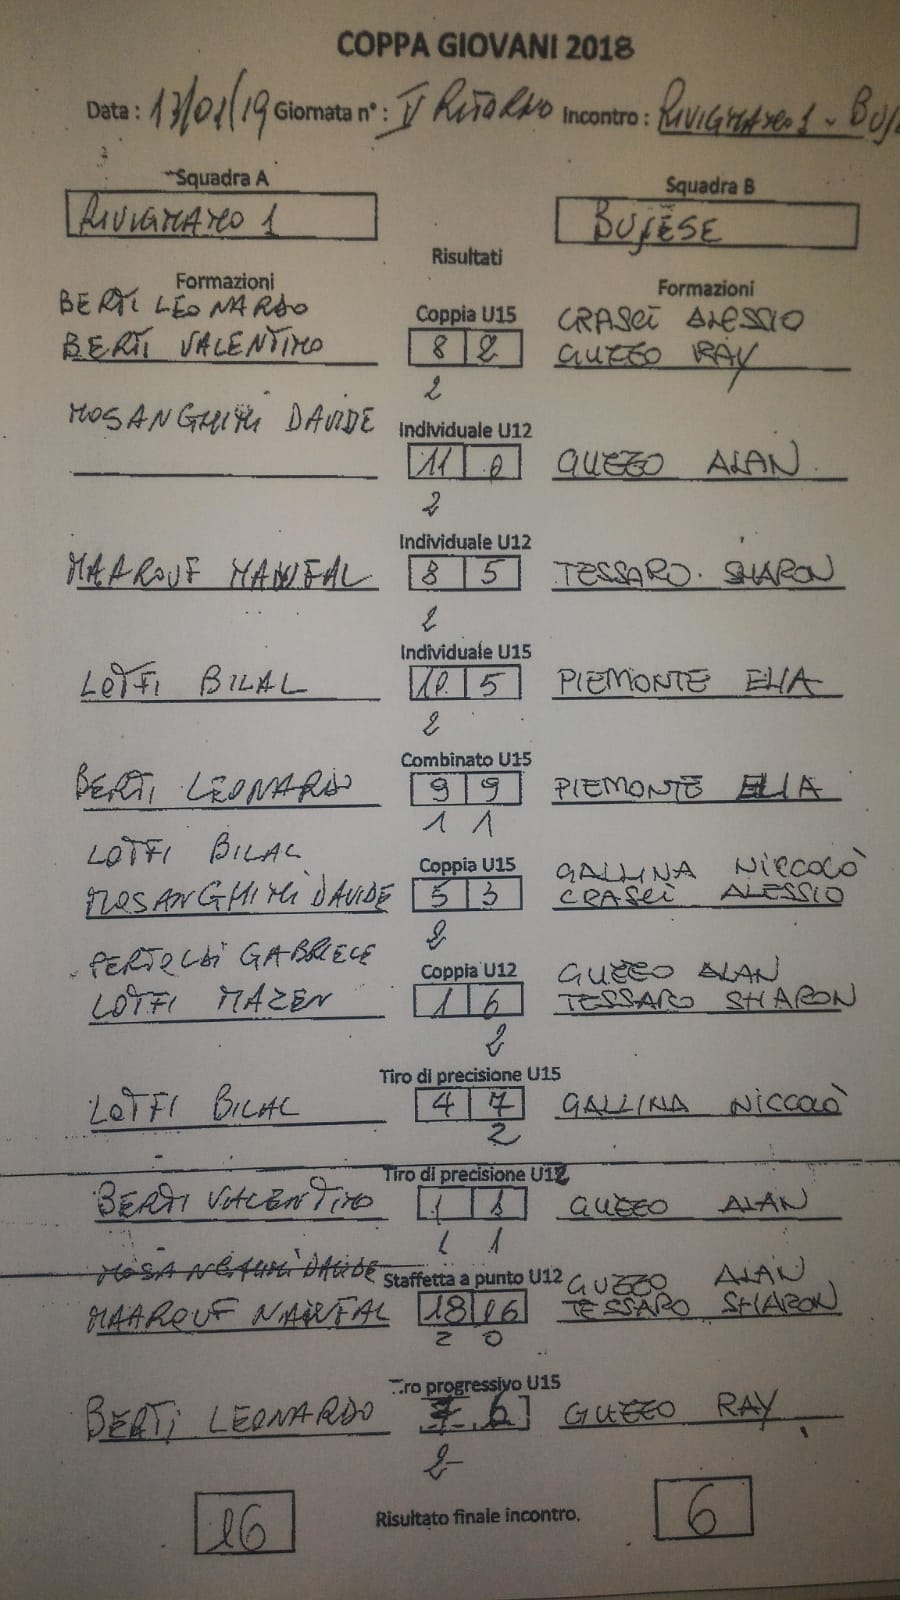 COPPA GIOVANI 2018
Data : 13/01/19 Giornata n° : V RITORNO Incontro : RIVIGNANO 1 - BUJ
Squadra A Squadra B
RIVIGNANO 1 BUJESE
Risultati
Formazioni Formazioni
BERTI LEONARDO Coppia U15 CRASCÌ ALESSIO
BERTI VALENTINO 8 2 GUZZO RAY
2
MOSANGHINI DAVIDE Individuale U12
11 0 GUZZO ALAN
2
Individuale U12
MAAROUF NAWFAL 8 5 TESSARO SHARON
2
Individuale U15
LOTFI BILAL 5 PIEMONTE ELIA
2
Combinato U15
BERTI LEONARDO 9 9 PIEMONTE ELIA
1 1
LOTFI BILAL Coppia U15 GALLINA NICCOLÒ
MOSANGHINI DAVIDE 5 3 CRASCÌ ALESSIO
2
PERTOLDI GABRIELE Coppia U12 GUZZO ALAN
LOTFI MAZEN 1 6 TESSARO SHARON
2
Tiro di precisione U15
LOTFI BILAL 4 7 GALLINA NICCOLÒ
2
Tiro di precisione U12
BERTI VALENTINO 1 1 GUZZO ALAN
1 1
MOSANGHINI DAVIDE Staffetta a punto U12 GUZZO ALAN
MAAROUF NAWFAL 18 16 TESSARO SHARON
2 0
Tiro progressivo U15
BERTI LEONARDO 7 6 GUZZO RAY
2
16 Risultato finale incontro. 6